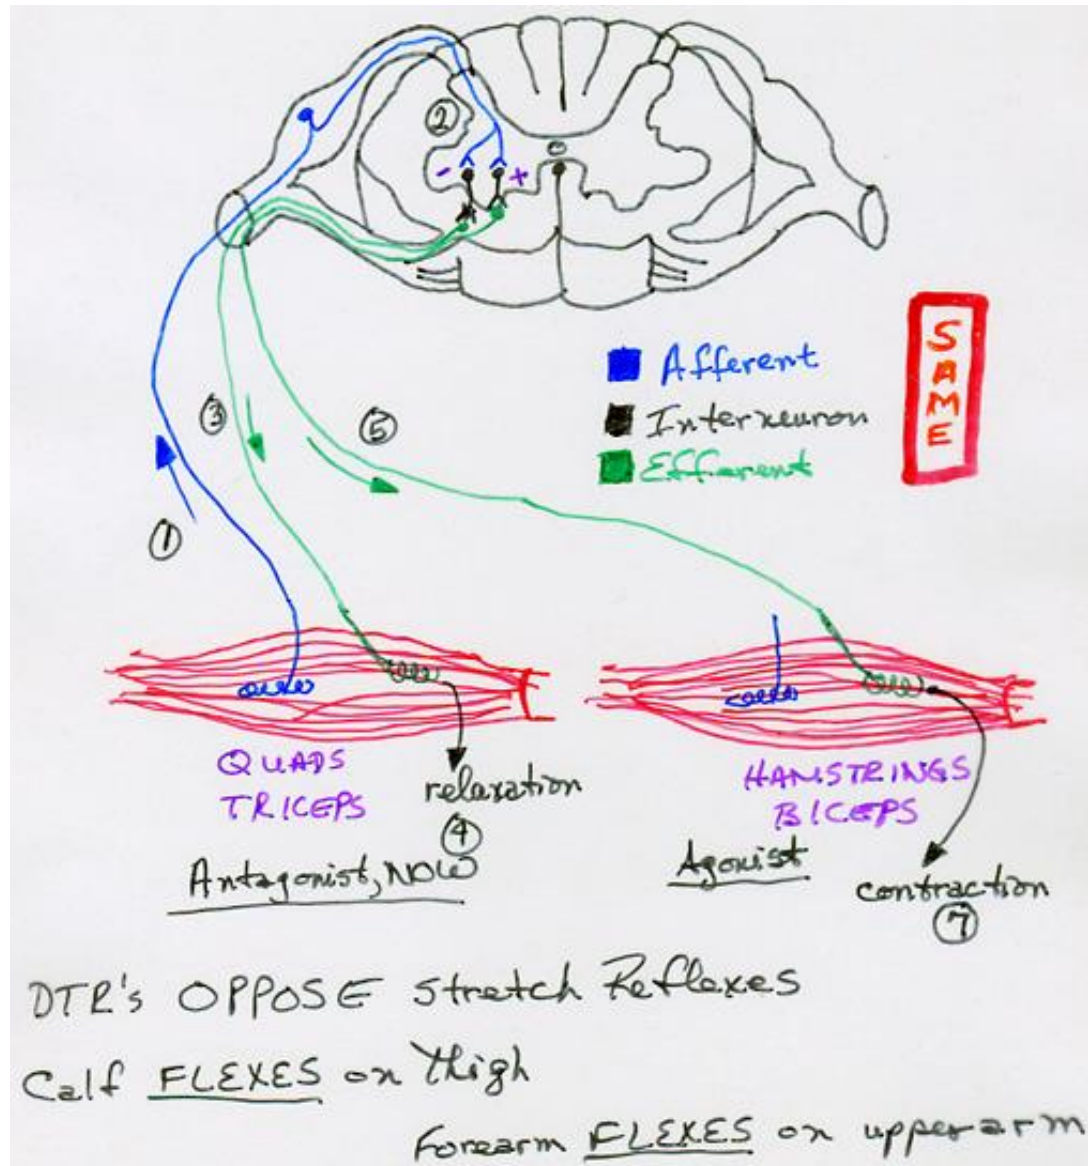 ②
-
+
Afferent
Interneuron
Efferent
SAME
③
⑤
①
QUADS
TRICEPS
relaxation
④
Antagonist, NOW
HAMSTRINGS
BICEPS
Agonist
contraction
⑦
DTR's OPPOSE stretch Reflexes
Calf FLEXES on Thigh
Forearm FLEXES on upper arm